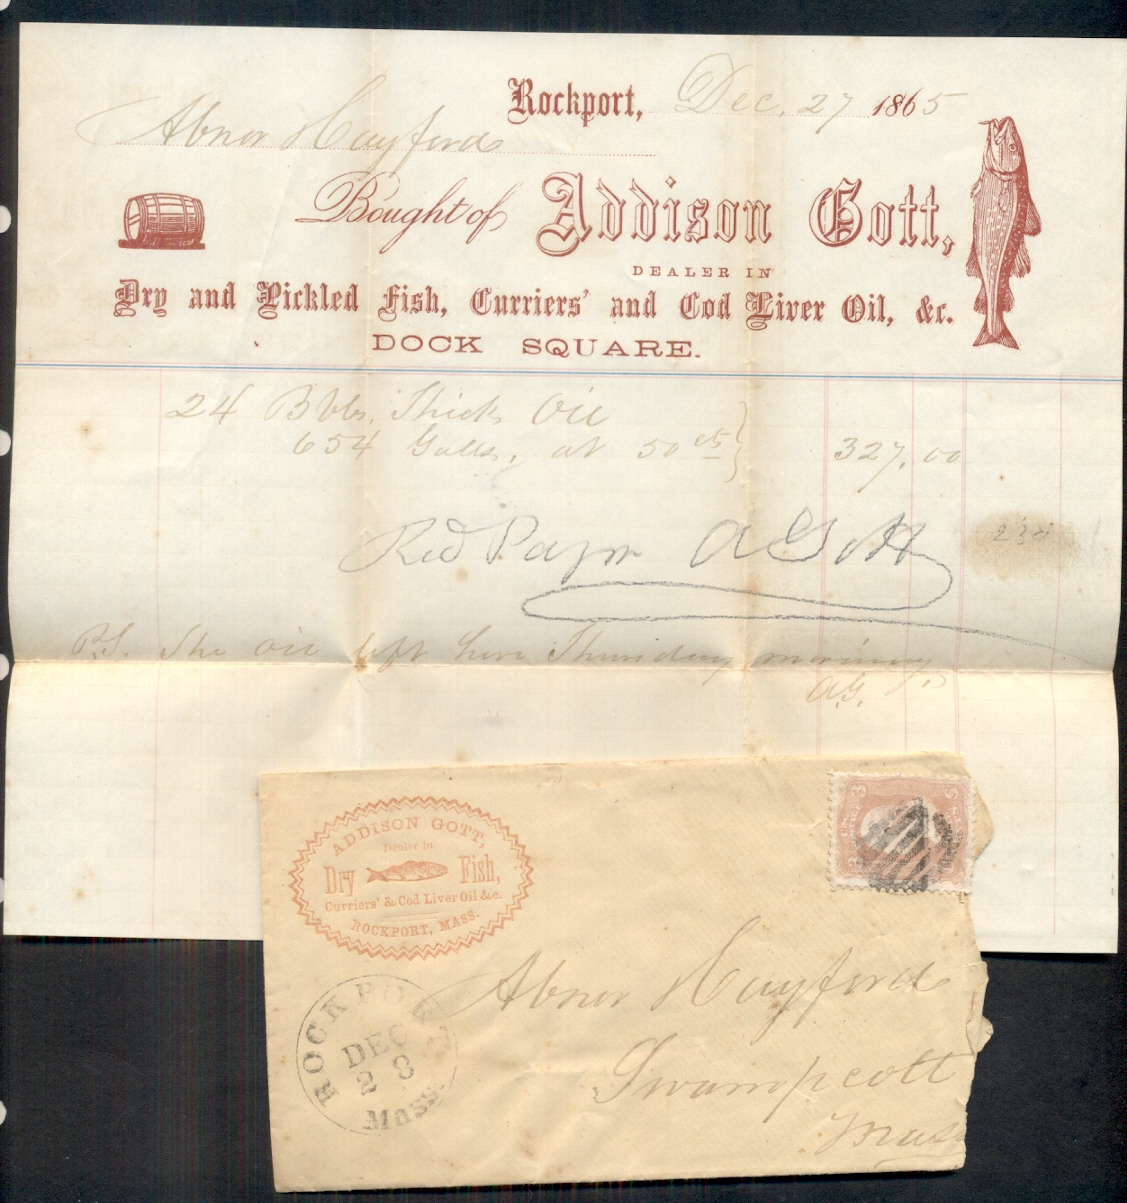 Rockport, Dec. 27 1865
Abner Hayford
Bought of Addison Gott,
DEALER IN
Dry and Pickled Fish, Curriers' and Cod Liver Oil, &c.
DOCK SQUARE.
24 Bbls. Thick Oil
654 Galls. at 50 cts } 327.00
Recd Paym A Gott
P.S. The oil left here Thursday morning.
A.G.
ADDISON GOTT,
Dealer in
Dry Fish,
Curriers' & Cod Liver Oil &c.
ROCKPORT, MASS.
ROCKPORT
DEC
28
Mass.
Abner Hayford
Swampscott
Mass